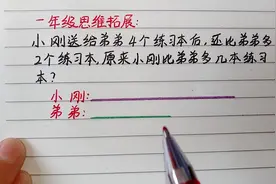 一年级思维拓展:
小刚送给弟弟4个练习本后,还比弟弟多
2个练习本,原来小刚比弟弟多几本练习
本?
小刚:
弟弟: